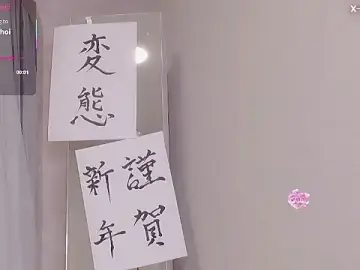 to
hoi
00:01
X-
変
態
謹賀
新年